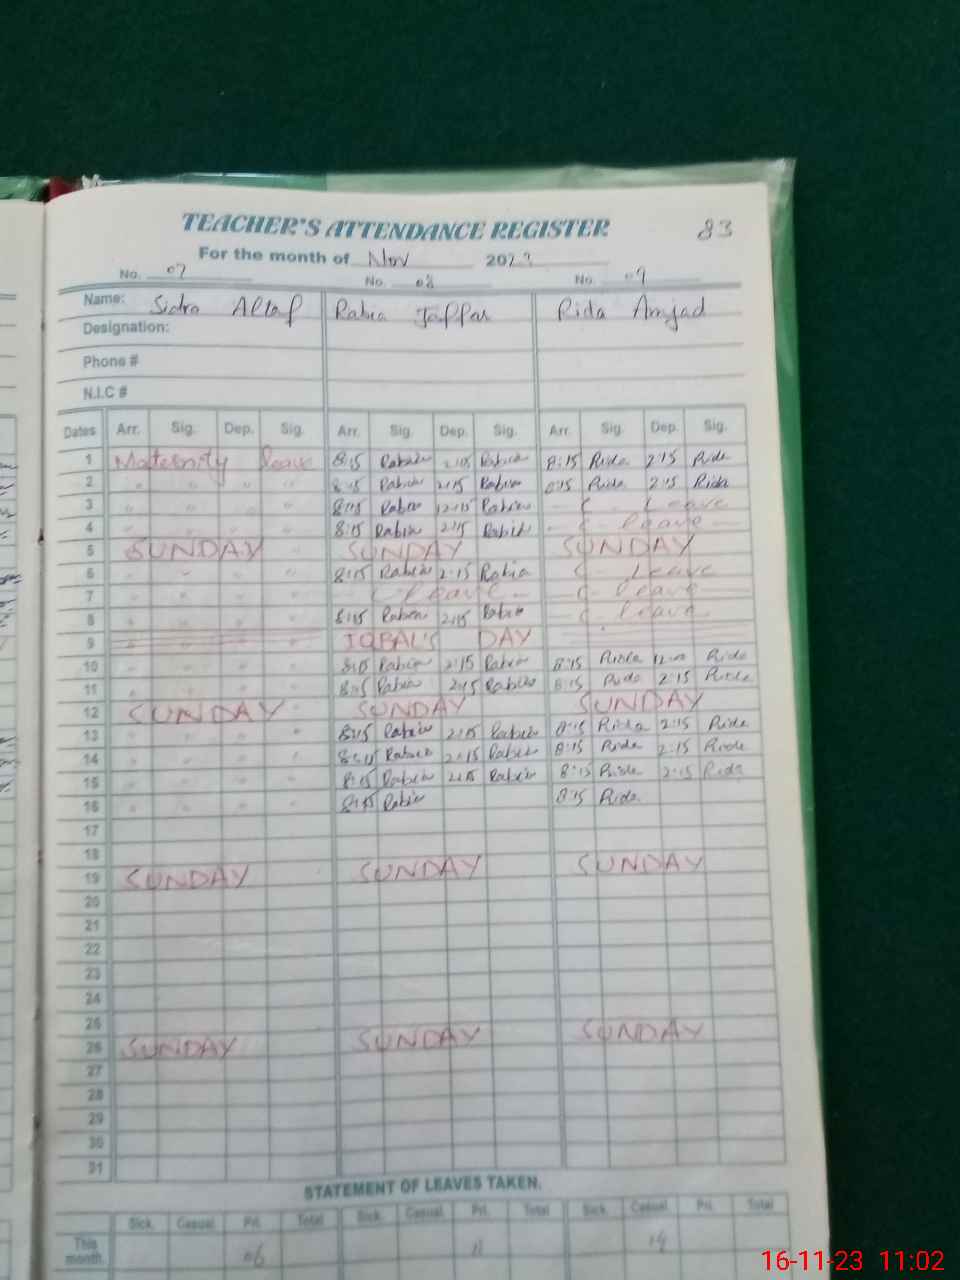 TEACHER'S ATTENDANCE REGISTER 83
For the month of Nov 2023
No. 07 No. 08 No. 09
Name: Sidra Altaf Rabia Jaffar Rida Amjad
Designation:
Phone #
N.I.C #
Dates Arr. Sig. Dep. Sig. Arr. Sig. Dep. Sig. Arr. Sig. Dep. Sig.
1 Maternity leave 8:15 Rabia 2:15 Rabia 8:15 Rida 2:15 Rida
2 " " " " 8:15 Rabia 2:15 Rabia 8:15 Rida 2:15 Rida
3 " " " " 8:15 Rabia 12:15 Rabia - Leave
4 " " " " 8:15 Rabia 2:15 Rabia - leave -
5 SUNDAY " SUNDAY SUNDAY
6 " " " 8:15 Rabia 2:15 Rabia - Leave
7 " " " Leave - - leave
8 " " " 8:15 Rabia 2:15 Rabia - leave
9 " " " IQBAL'S DAY
10 " " " 8:15 Rabia 2:15 Rabia 8:15 Rida Rida
11 " " " 8:15 Rabia 2:15 Rabia 8:15 Rida 2:15 Rida
12 SUNDAY " SUNDAY SUNDAY
13 " " " 8:15 Rabia 2:15 Rabia 8:15 Rida 2:15 Rida
14 " " " 8:15 Rabia 2:15 Rabia 8:15 Rida 2:15 Rida
15 " " " 8:15 Rabia 2:15 Rabia 8:15 Rida 2:15 Rida
16 " " " 8:15 Rabia 8:15 Rida
17
18
19 SUNDAY SUNDAY SUNDAY
20
21
22
23
24
25
26 SUNDAY SUNDAY SUNDAY
27
28
29
30
31
STATEMENT OF LEAVES TAKEN.
Sick. Casual Pri. Total Sick. Casual Pri. Total Sick. Casual Pri. Total
This month 06 11
16-11-23 11:02